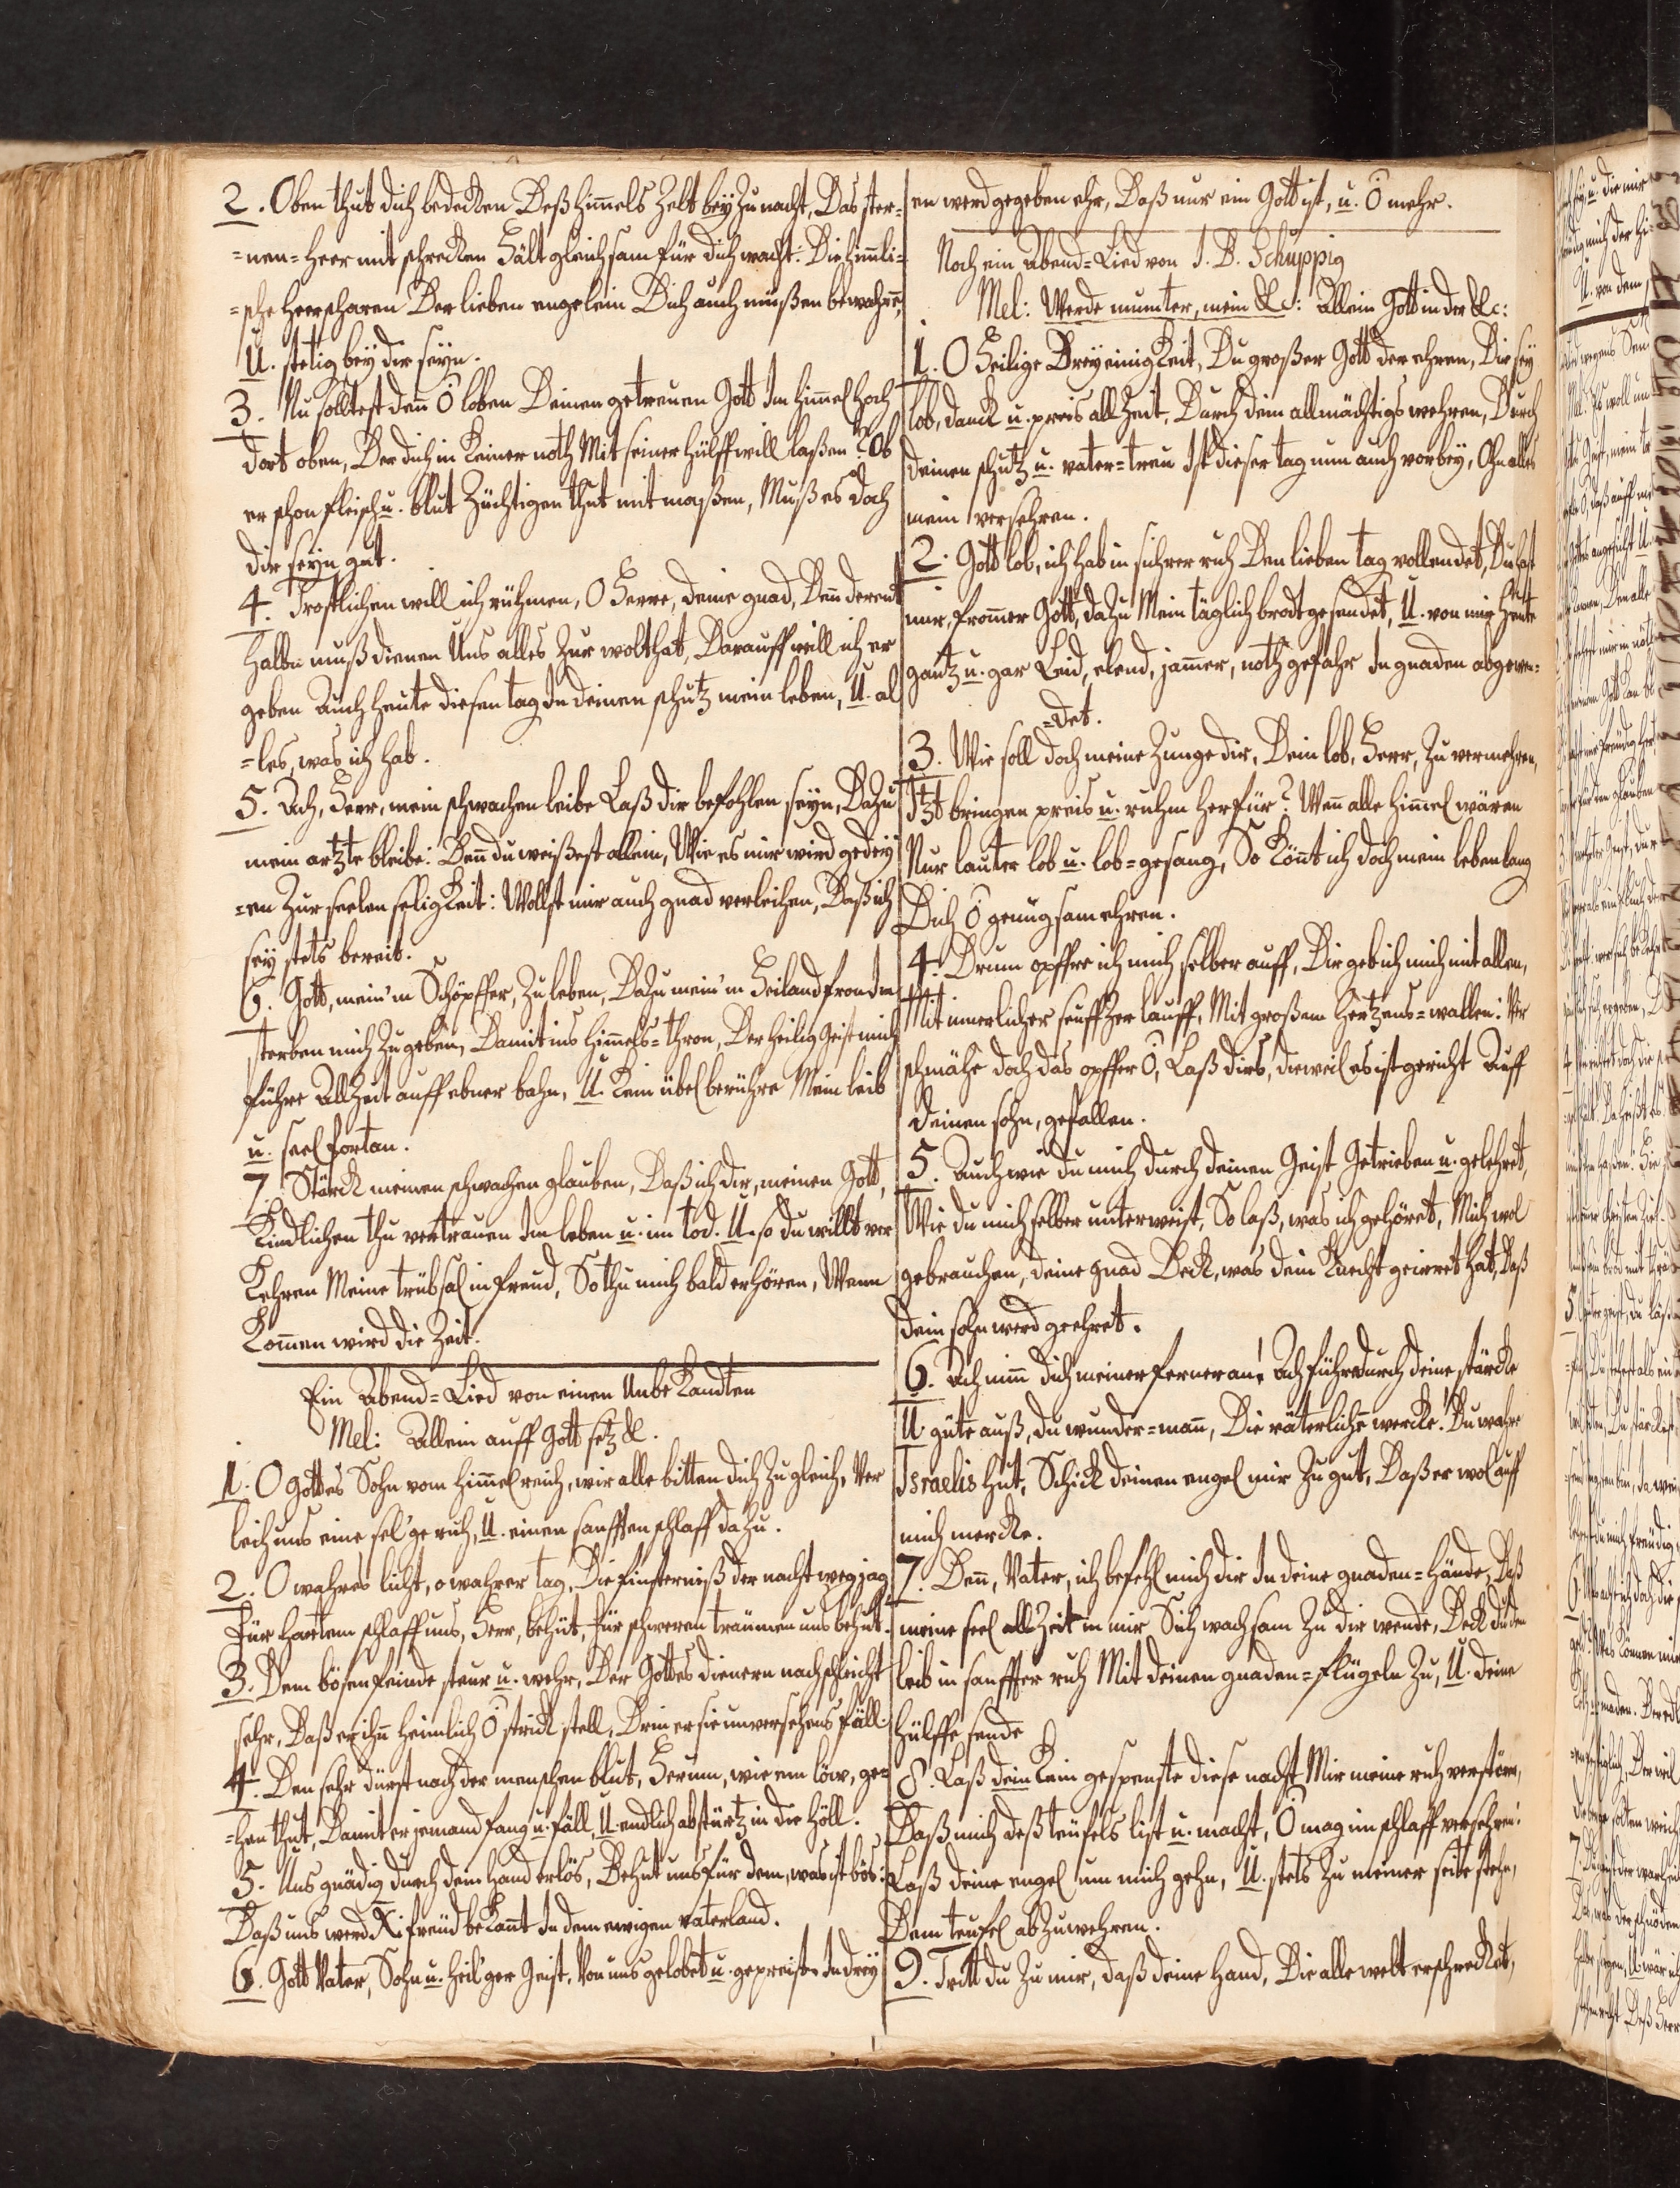 2. Oben thut dich bedecken Deß him̄els Zelt bey Zu nacht, Das ster-
=nen=heer mit schrecken Hält gleichsam für dich wacht: Die him̄li-
=sche heerscharen Der lieben engelein Dich auch müßen bewahrn̄,
U. stetig bey dir seyn.
3. Nu solltest den̄ O loben Deinen getreuen Gott Im him̄el hoch
dort oben, Der dich in keiner noth Mit seiner hülff will laßen? Ob
er schon fleisch u. blut Züchtigen thut mit maßen, Muß es doch
dir seyn gut.
4. Trostlichen will ich rühmen, O Herre, deine gnad, Den̄ derent
halbn muß dienen Uns alles Zur wolthat, Darauff will ich er
geben Auch heute diesen tag In deinen schutz mein leben, U. al
=les, was ich hab.
5. Ach, Herr, mein schwachen leibe Laß dir befohlen seyn, Dazu
mein artzte bleibe: Den̄ du weißest allein, Wie es mir wird gedey
=en Zur seelen seligkeit: Wollst mir auch gnad verleihen, Daß ich
sey stets bereit.
6. Gott, mein'm Schöpffer, Zu leben, Dazu mein'm Heiland fron Im
sterben mich Zu geben, Damit ins him̄els=thron, Der heilig Geist mich
führe Allzeit auff ebner bahn, U. kein übel berühre Mein leib
u. seel fortan.
7. Stärck meinen schwachen glauben, Daß ich dir, meinen Gott,
Kindlichen thu vertrauen Im leben u. im tod. U. so du willt ver
kehren Meine trübsal in freud, So thu mich bald erhören, Wenn
kom̄en wird die Zeit.
Ein Abend=Lied von einen Unbekandten
Mel: Allein auff Gott setz &.
1. O Gottes Sohn vom him̄elreich, wir alle bitten dich Zugleich, Ver
leih uns eine sel'ge ruh, U. einen sanfften schlaff dazu.
2. O wahres licht, o wahrer tag, Die finsterniß der nacht weg jag
Für hartem schlaff uns, Herr, behüt, für schweren träumen uns behüt.
3. Dem bösen feinde steur u. wehr, Der Gottes dienern nachschleicht
sehr, Daß er ihn̄ heimlich O strick stell, Drin er sie unversehens fäll.
4. Den sehr dürst nach der menschen blut, Herum, wie ein löw, ge=
=hen thut, Damit er jemand fang u. fäll, U. endlich abstürtz in die höll.
5. Uns gnädig durch dein hand erlös, Behüt uns für dem, was ist bös.
Daß uns werd Xi freud bekan̄t In dem ewigen vaterland.
6. Gott Vater, Sohn u. heil'ger Geist, Von uns gelobet u. gepreist. In drey
en werd gegeben ehr, Daß nur ein Gott ist, u. O mehr.
Noch ein Abend=Lied von J. B. Schuppig
Mel: Werde munter, mein &c: Allein Gott in der &c:
1. O Heilige Dreyeinigkeit, Du großer Gott der ehren, Dir sey
lob, danck u. preis allzeit, Durch dein allmächtigs wehren, Durch
deinen schutz u. vater=treu Ist dieser tag nun auch vorbey, Ohn alles
mein versehren.
2. Gott lob, ich hab in sichrer ruh Den lieben tag vollendet, Du hast
mir, from̄er Gott, dazu Mein täglich brodt gesendet, U. von mir heute
gantz u. gar Leid, elend, jam̄er, noth gefahr In gnaden abgewen=
=det.
3. Wie soll doch meine Zunge dir, Dein lob, Herr, Zu vermehren,
Itzt bringen preis u. ruhm herfür? Wen̄ alle him̄el wären
Nur lauter lob u. lob=gesang, So kön̄t ich doch mein lebenlang
Dich O genugsam ehren.
4. Drum opffre ich mich selber auff, Dir geb ich mich mit allen,
Mit innerlicher seuffzer lauff, Mit großem hertzens=wallen: Ver
schmähe doch das opffer O, Laß dirs, dieweil es ist gericht Auff
deinen sohn, gefallen.
5. Auch wie du mich durch deinen Geist Getrieben u. gelehret,
Wie du mich selber unterweist, So laß, was ich gehöret, Mich wol
gebrauchen, deine gnad Deck, was dein knecht geirret hat, Daß
dein sohn werd geehret.
6. Ach nim̄ dich meiner ferner an! Ach führ durch deine stärcke
U. güte auß, du wunder=man̄, Die väterliche wercke! Du wahre
Israelis hut, Schick deinen engel mir Zu gut, Daß er wol auff
mich mercke.
7. Den̄, Vater, ich befehl mich dir In deine gnaden=hände, Daß
meine seel allzeit in mir Sich wachsam Zu dir wende, Deck du den
leib in sanffter ruh Mit deinen gnaden=flügeln Zu, U. deine
hülffe sende
8. Laß dein kein gespenste diese nacht Mir meine ruh verstören,
Daß mich deß teufels list u. macht, O mag im schlaff versehren!
Laß deine engel um mich gehn, U. stets Zu meiner seite stehn,
Dem teufel abzuwehren.
9. Tritt du Zu mir, daß deine hand, Die alle welt erschrecket,